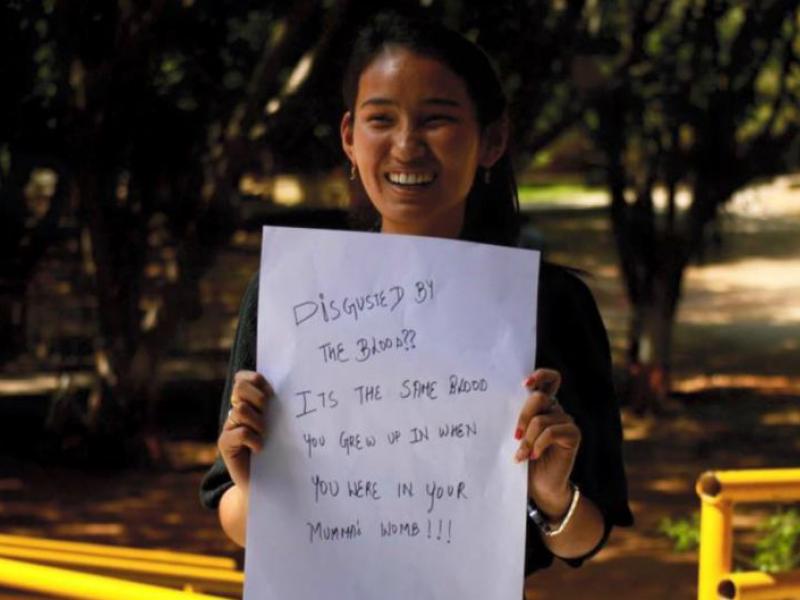 DISGUSTED BY
THE BLOOD??
ITS THE SAME BLOOD
YOU GREW UP IN WHEN
YOU WERE IN YOUR
MUMMAI WOMB!!!